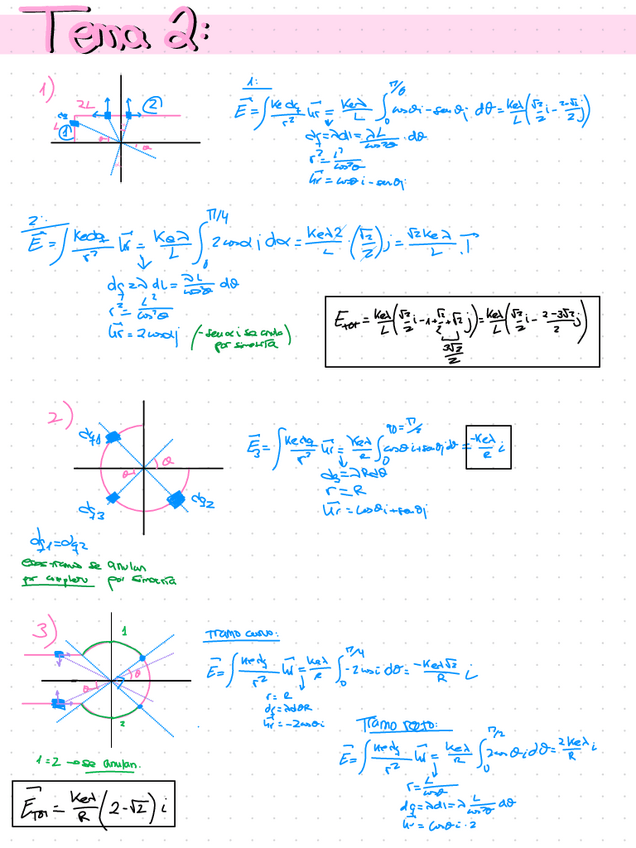 Tema 2:
1)
2L
L
①
②
1:
E⃗=∫ Ke dq/r² u⃗r = Keλ/L ∫₀^π/4 cosθi-senθj dθ = Keλ/L (√2/2 i - 2-√2/2 j)
dq=λdl= λL/cos²θ · dθ
r²= L²/cos²θ
u⃗r = cosθi-senθj
2:
E⃗=∫ Ke dq/r² u⃗r = Keλ/L ∫₀^π/4 2cosα j dα = Keλ2/L · (√2/2) j = √2Keλ/L j⃗
dq=λdL= λL/cos²θ dθ
r²= L²/cos²θ
u⃗r = 2cosαj
(-senα i se anula
por simetría)
E_TOT = Keλ/L (√2/2 i - 1 + √2/2 + √2 j) = Keλ/L (√2/2 i - 2-3√2/2 j)
3√2/2
2)
dq1
θ
θ
dq3
dq2
E⃗3=∫ Ke dq/r² u⃗r = Keλ/R ∫₀^90=π/2 cosθi+senθj dθ = -Keλ/R i
dq=λRdθ
r=R
u⃗r = cosθi+senθj
dq1=dq2
esos tramos se anulan
por completo por simetría
3)
1
θ
θ
2
Tramo curvo:
E⃗=∫ Ke dq/r² u⃗r = Keλ/R ∫₀^π/4 -2cosi dθ = -Keλ√2/R i
r=R
dq=λdθR
u⃗r = -2cosθi
Tramo recto:
E⃗=∫ Ke dq/r² u⃗r = Keλ/R ∫₀^π/2 2cosθi dθ = 2Keλ/R i
r= L/cosθ
dq=λdl=λ L/cos²θ dθ
u⃗r = cosθi·2
1=2 → se anulan.
E⃗_TOT = Keλ/R (2-√2) i